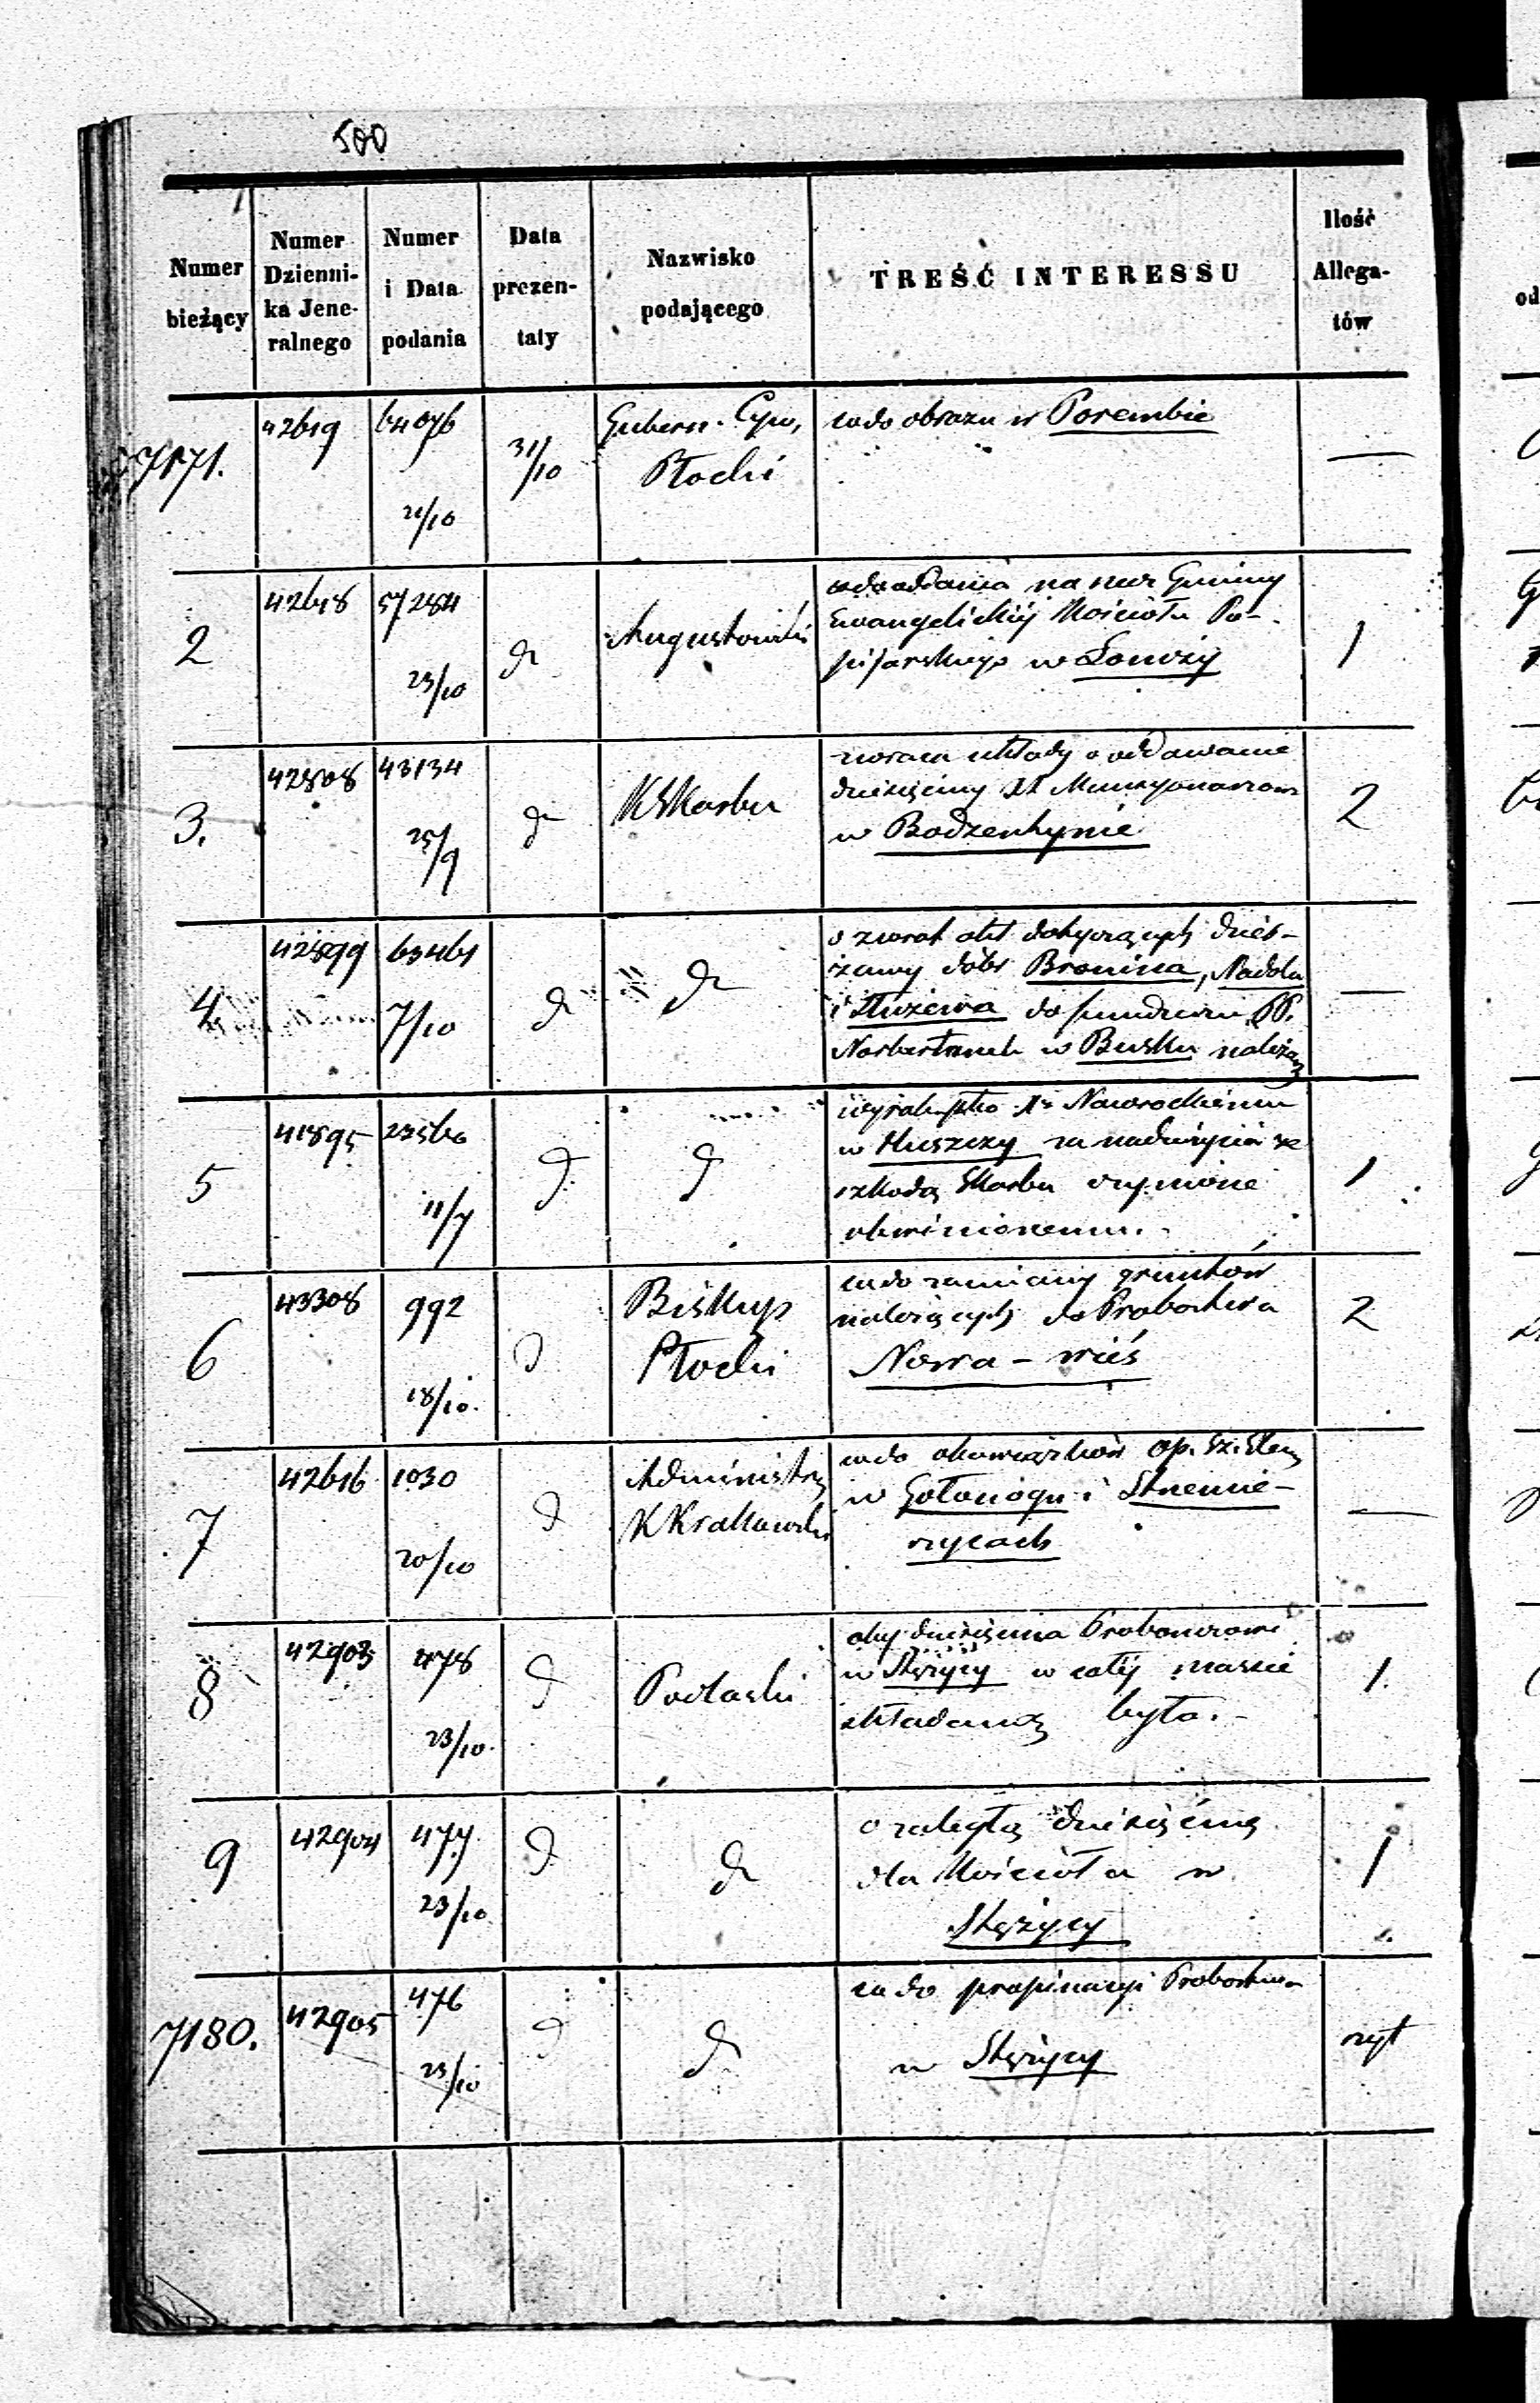 500
Numer bieżący
Numer Dzienni-
ka Jene-
ralnego
Numer i Data podania
Data prezen-
taty
Nazwisko podającego
TREŚĆ INTERESSU
Ilość Allega-
tów
7171. 42619 64076 21/10 31/10 Gubern. Cyw. Płocki
co do obrazu w Porembie —
2 42618 57284 23/10 d Augustowski
na rzecz Gminy
Ewangelickiej Kościoła Po-
pijarskiego w Łomży 1
3. 42808 43134 25/9 d KSkarbu
zwraca układy o oddawanie
dziesięciny XX Mansyonarzom
w Bodzentynie 2
4. 42899 63461 7/10 d d
o zwrot akt dotyczących dzier-
żawy dóbr Bronina, Nadola
i Służewa do funduszu PP.
Norbertanek w Busku należą 
—
5 41895 23560 11/7 d d
Nawrockiemu
w za nadużycia ze
szkodą Skarbu czynione
obwinionemu. 1
6 43308 992 18/10. d Biskup Płocki
co do zamiany gruntów
należących do Probostwa
Nowa-wieś 2
7 42616 1030 20/10 d Administr KKrakowski
co do obowiązków Op. Sz. Elem
w Gołonogu i Strzemie-
szycach —
8 42903 478 23/10. d Podlaski
aby dziesięcina Proboszczowi
w Stężycy w całej massie
składaną była. 1.
9 42904 477 23/10 d d
o zaległą dziesięcinę
dla Kościoła w
Stężycy 1
7180. 42905 476 23/10 d d
co do propinacyi Probostwa
w Stężycy
szyt